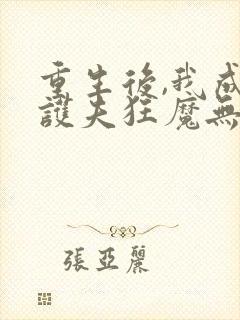 重生後,我成
護夫狂魔無
張亞麗